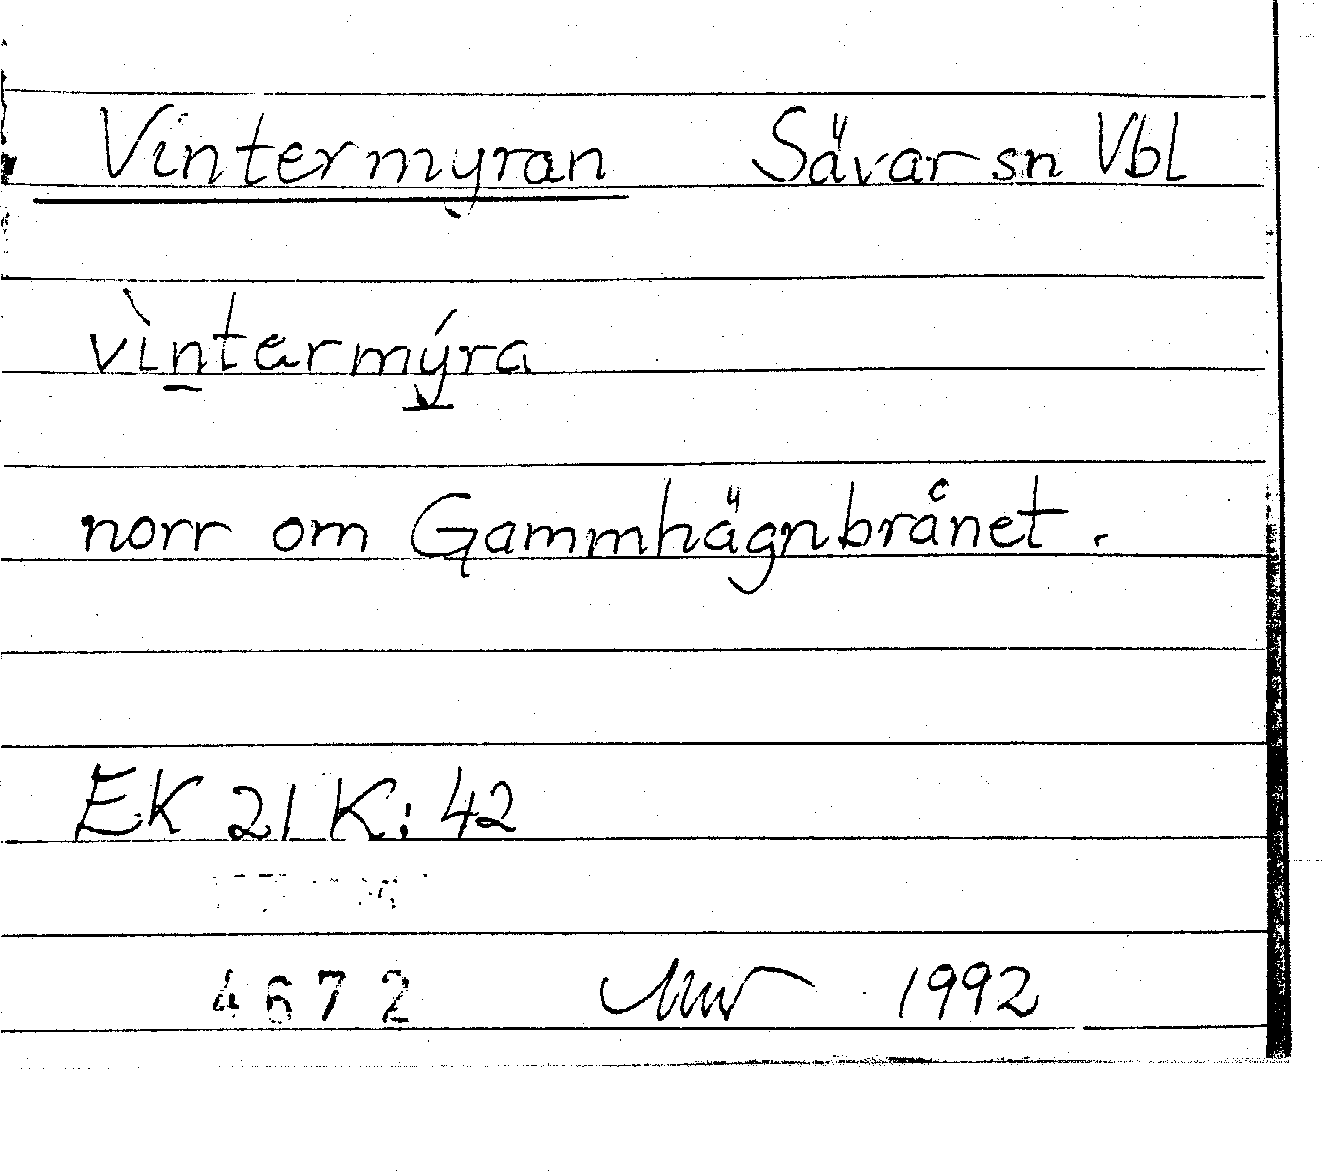 Vintermyran Sävar sn Vbl
vìntærmýra
norr om Gammhägnbrånet.
EK 21 K: 42
4672 1992